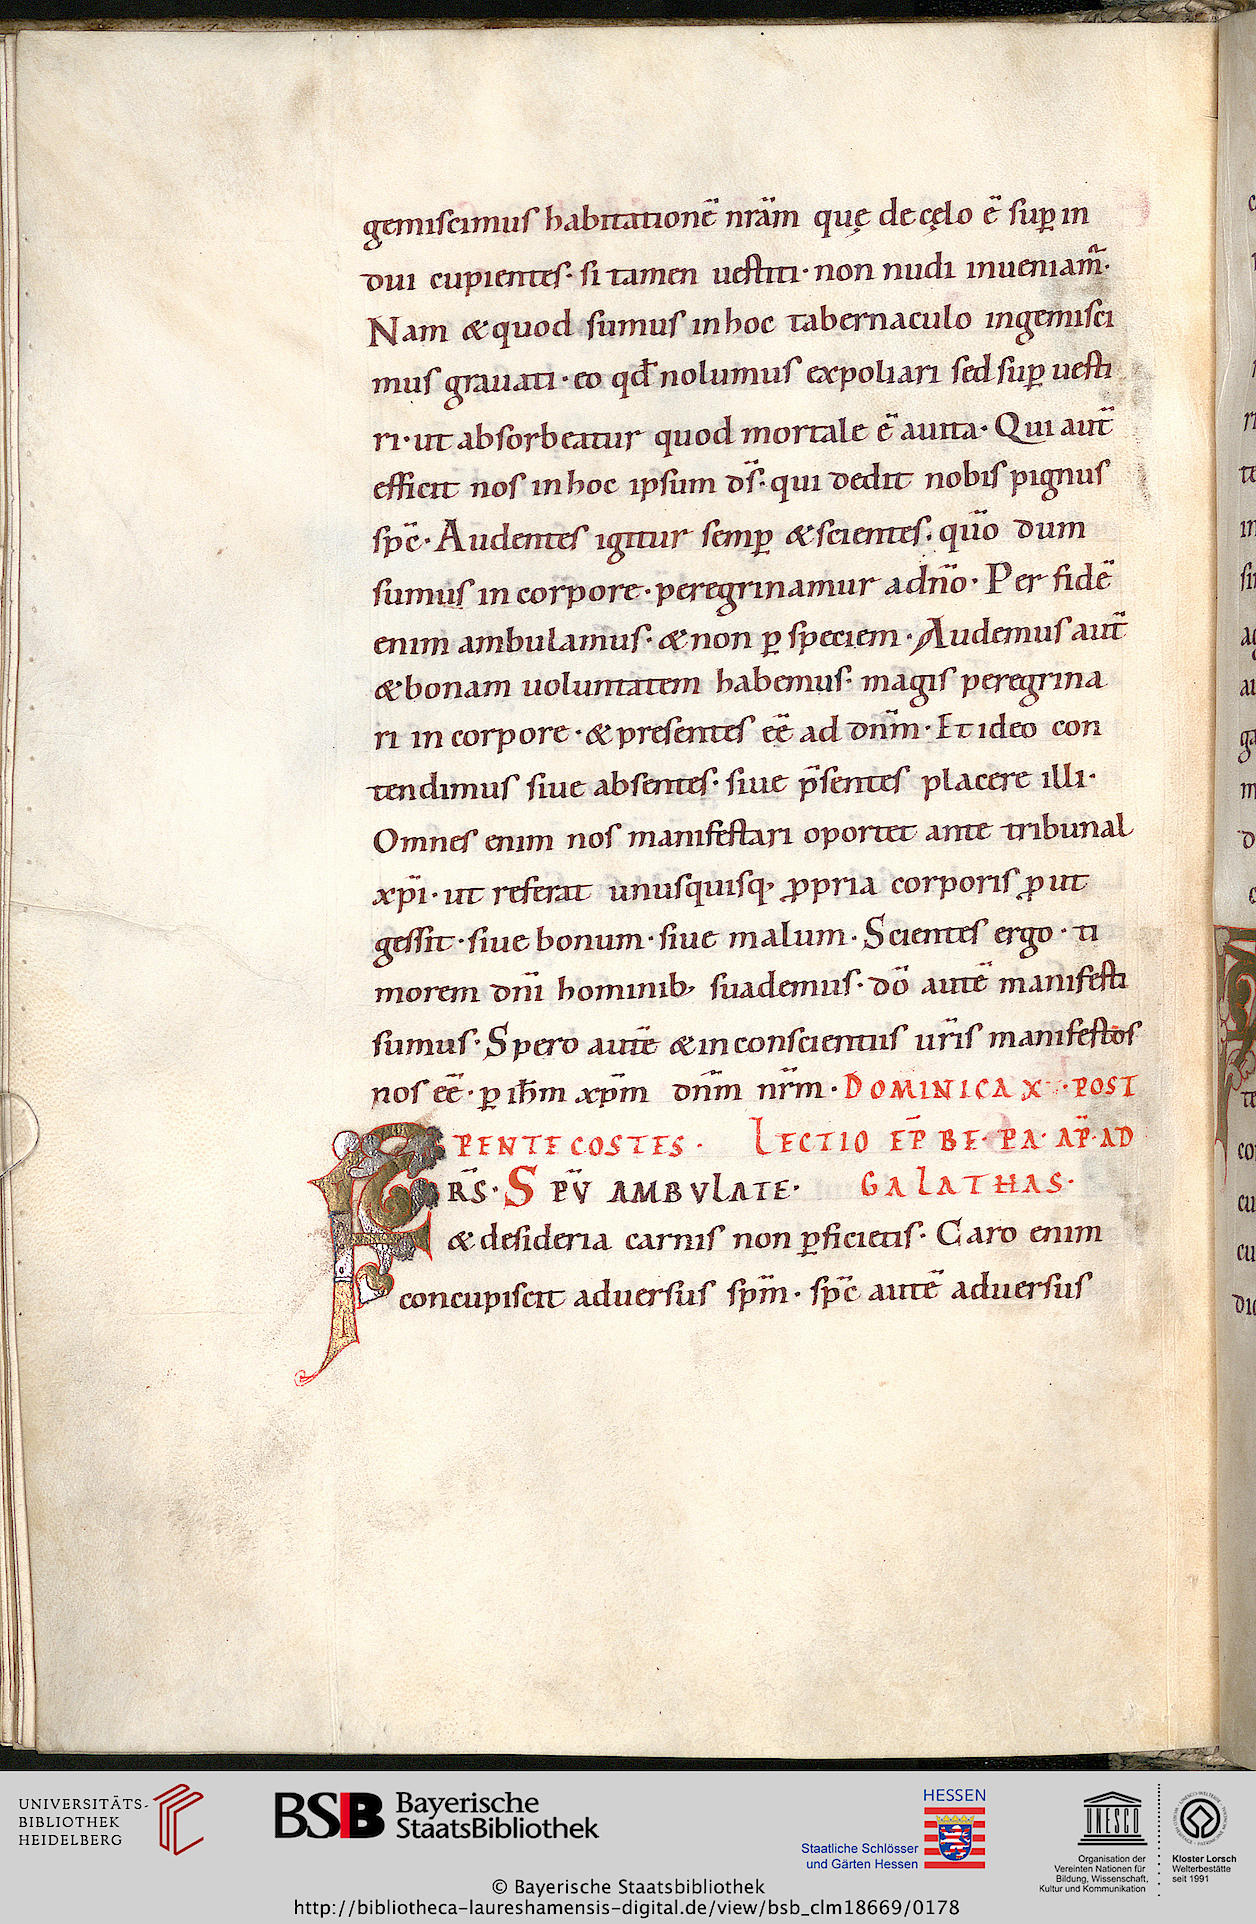 gemiscimus habitationē nrām quę de cęlo ē sup in
dui cupientes· si tamen uestiti· non nudi inueniam̃·
Nam & quod sumus in hoc tabernaculo ingemisci
mus grauati· eo qđ nolumus expoliari sed sup uesti
ri· ut absorbeatur quod mortale ē a uita· Qui aut̄
efficit nos in hoc ipsum ds̄· qui dedit nobis pignus
spc̄· Audentes igitur semp & scientes· qūo dum
sumus in corpore· peregrinamur a dn̄o· Per fidē
enim ambulamus· & non p speciem· Audemus aut̄
& bonam uoluntatem habemus· magis peregrina
ri in corpore· & presentes eē ad dn̄m· Et ideo con
tendimus siue absentes· siue p̄sentes placere illi·
Omnes enim nos manifestari oportet ante tribunal
xp̄i· ut referat unusquisq; ꝓpria corporis ꝓut
gessit· siue bonum· siue malum· Scientes ergo· ti
morem dn̄i hominib; suademus· dō autē manifesti
sumus· Spero autē & in conscientiis ur̄is manifestos
nos eē· p ih̄m xp̄m dn̄m nr̄m· DOMINICA X· POST
PENTECOSTES· LECTIO EP̄ BE· PA· AP̄· AD
FRS̄· SPŪ AMBULATE· GALATHAS·
& desideria carnis non pficietis· Caro enim
concupiscit aduersus spm̄· spc̄ autē aduersus
UNIVERSITÄTS-
BIBLIOTHEK
HEIDELBERG
BSB Bayerische
StaatsBibliothek
HESSEN
Staatliche Schlösser
und Gärten Hessen
UNESCO
Organisation der
Vereinten Nationen für
Bildung, Wissenschaft,
Kultur und Kommunikation
Kloster Lorsch
Welterbestätte
seit 1991
© Bayerische Staatsbibliothek
http://bibliotheca-laureshamensis-digital.de/view/bsb_clm18669/0178